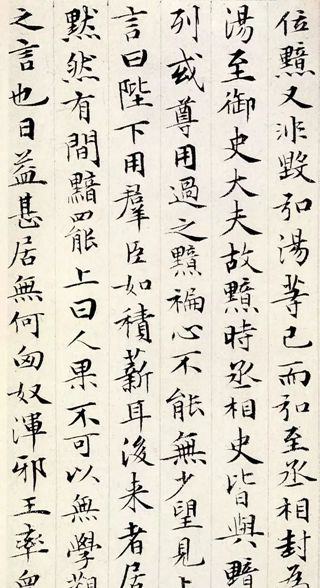 位黯又非毀弘湯等已而弘至丞相封
湯至御史大夫故黯時丞相史皆與黯
列或尊用過之黯褊心不能無少望見上
言曰陛下用羣臣如積薪耳後来者居
黙然有間黯罷上曰人果不可以無學觀
之言也日益甚居無何匈奴渾邪王率